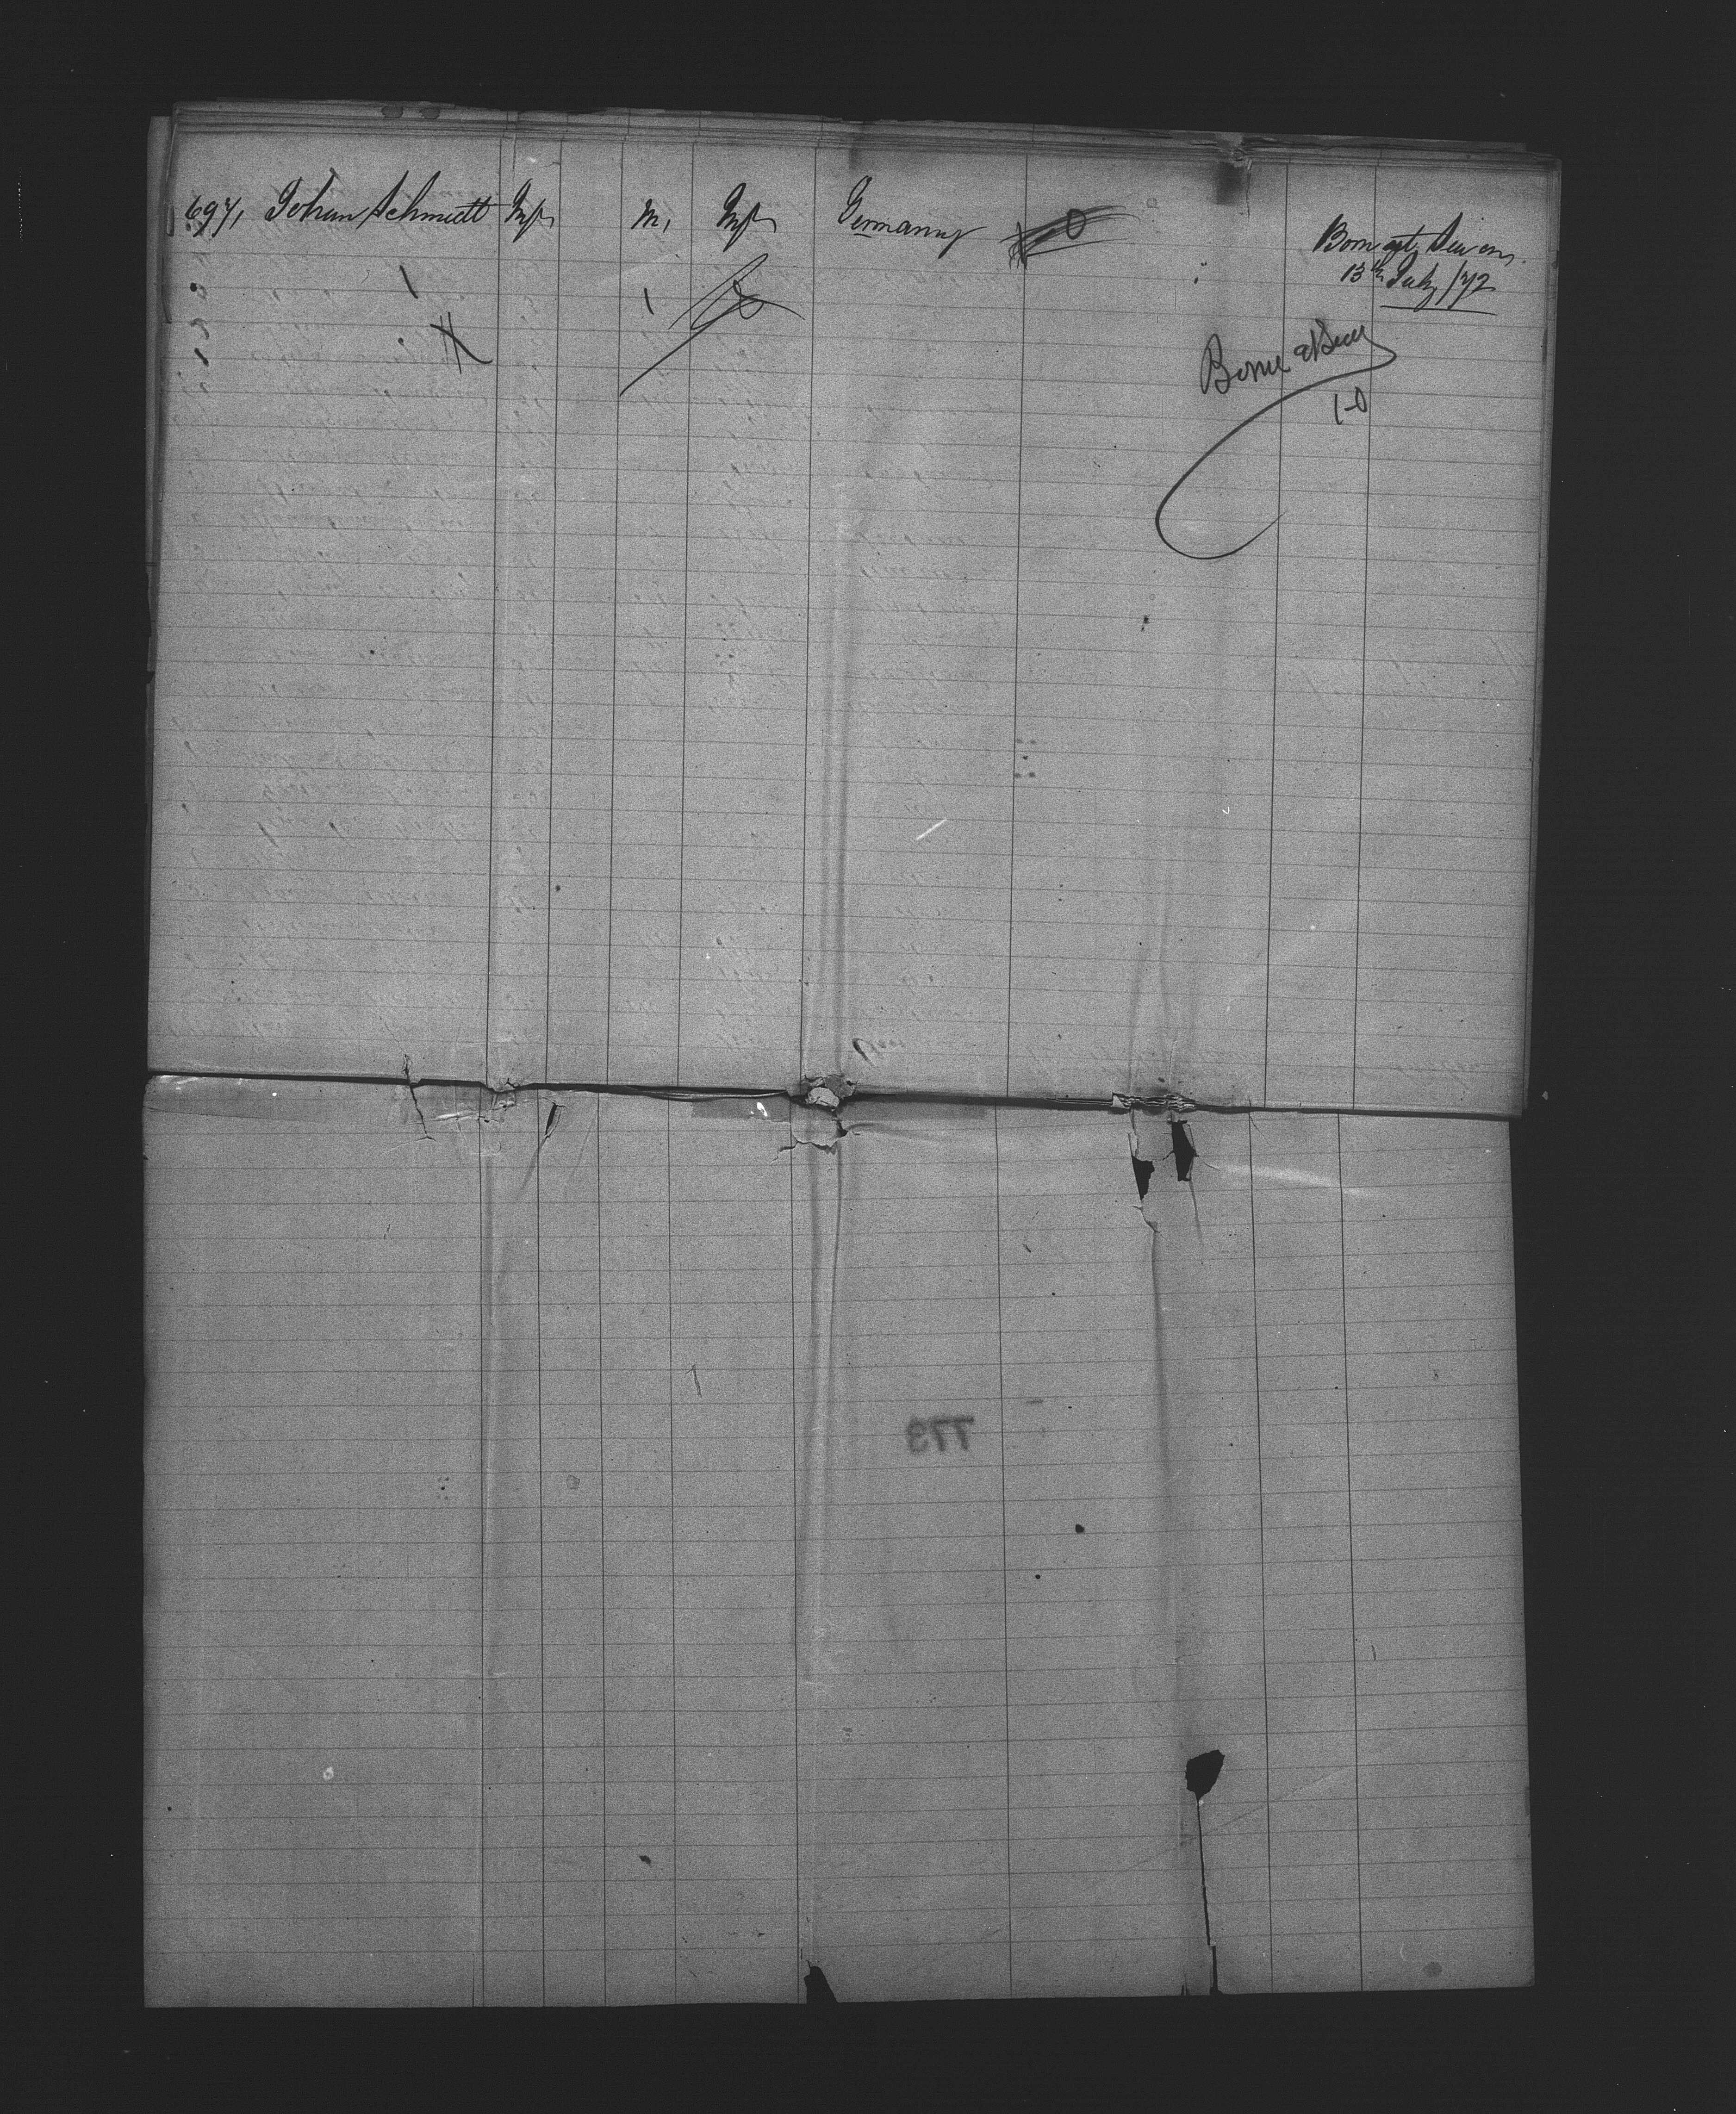 697, Johan Schmidt Inf M, Inf Germany 0 Born at Sea on
13th July /72
1 1
Born at Sea
1-0
773